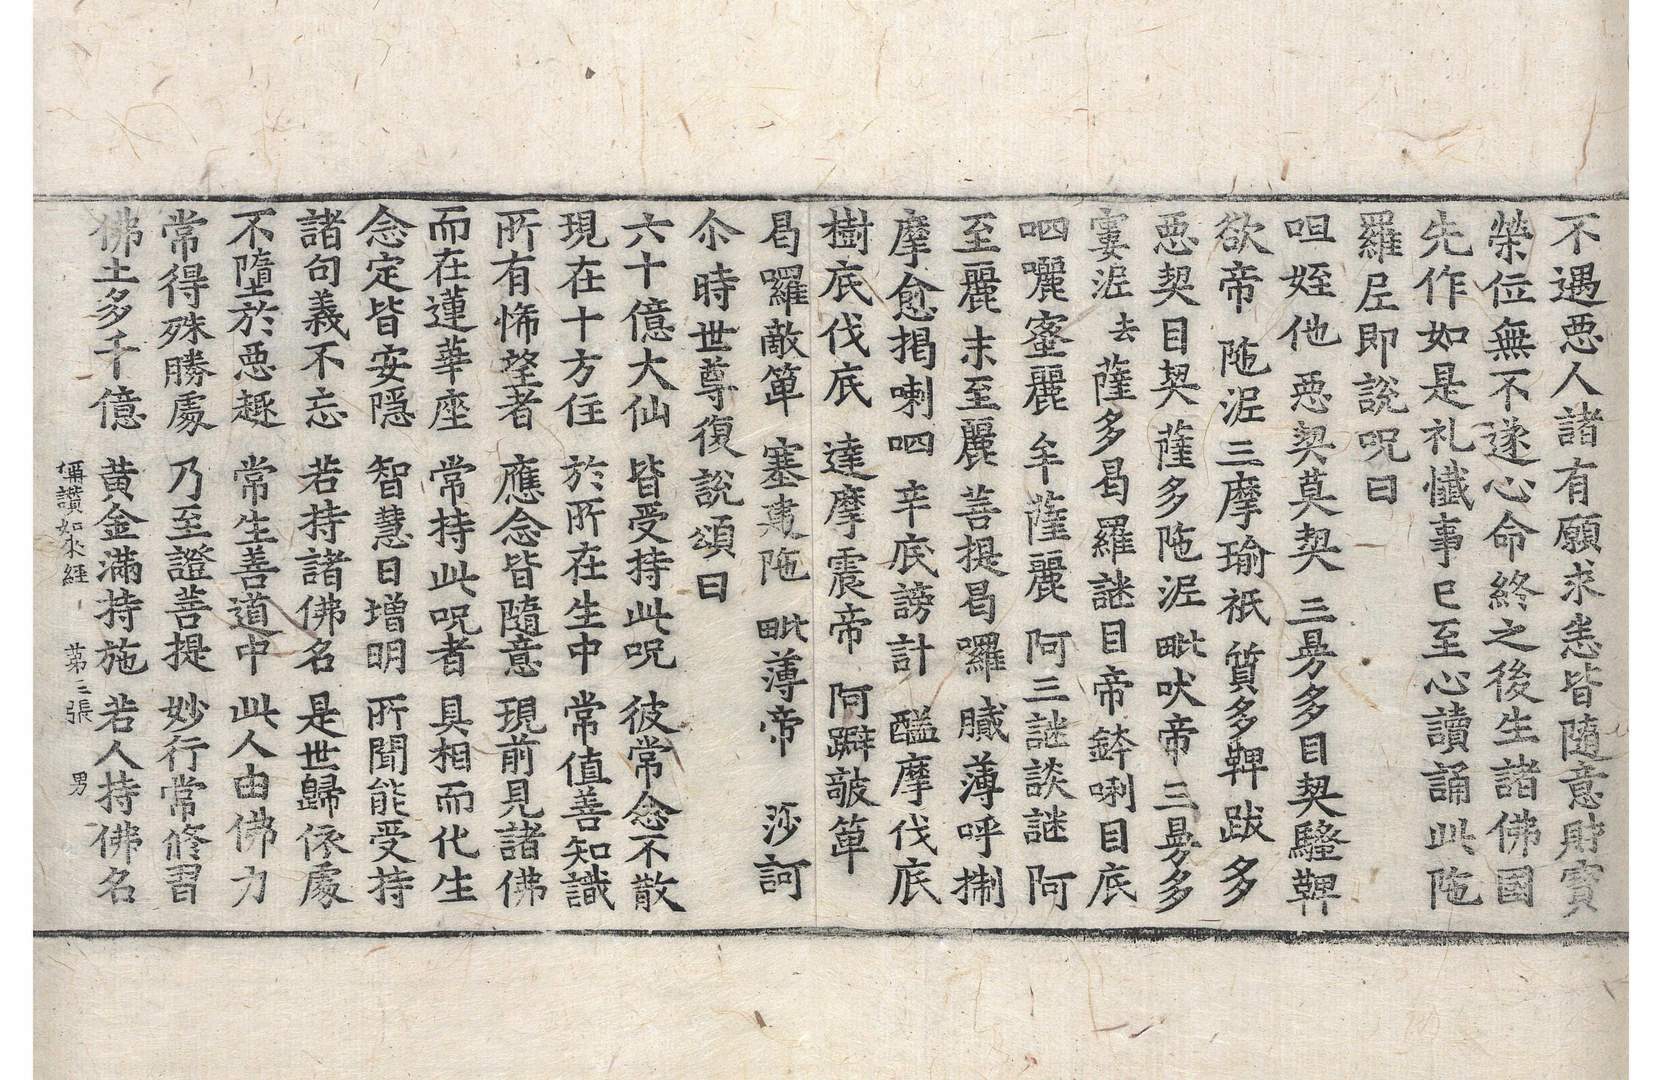 不遇惡人諸有願求恙皆隨意財寶
榮位無不遂心命終之後生諸佛國
先作如是礼懺事已至心讀誦此陁
羅尼即說呪曰
呾姪他 惡契莫契 三曼多目契騷鞞
欲帝 陁泥三摩瑜祇 質多鞞跋多
惡契目契薩多陁泥 毗吠帝 三曼多
寠泥去薩多曷羅謎目帝鉢唎目底
呬囇蜜麗 牟薩麗 阿三謎談謎 阿
至麗末至麗 菩提曷囉 臓薄呼捌
摩愈揭喇呬 辛底謗計 醯摩伐底
樹底伐底 達摩震帝 阿躃敼箄
曷囉敵箄 塞建陁 毗薄帝 莎訶
尒時世尊復說頌曰
六十億大仙 皆受持此呪 彼常念不散
現在十方住 於所在生中 常值善知識
所有悕望者 應念皆隨意 現前見諸佛
而在蓮華座 常持此呪者 具相而化生
念定皆安隱 智慧日增明 所聞能受持
諸句義不忘 若持諸佛名 是世歸依處
不墮於惡趣 常生善道中 此人由佛力
常得殊勝處 乃至證菩提 妙行常修習
佛土多千億 黃金滿持施 若人持佛名
稱讚如來經 第三張 男